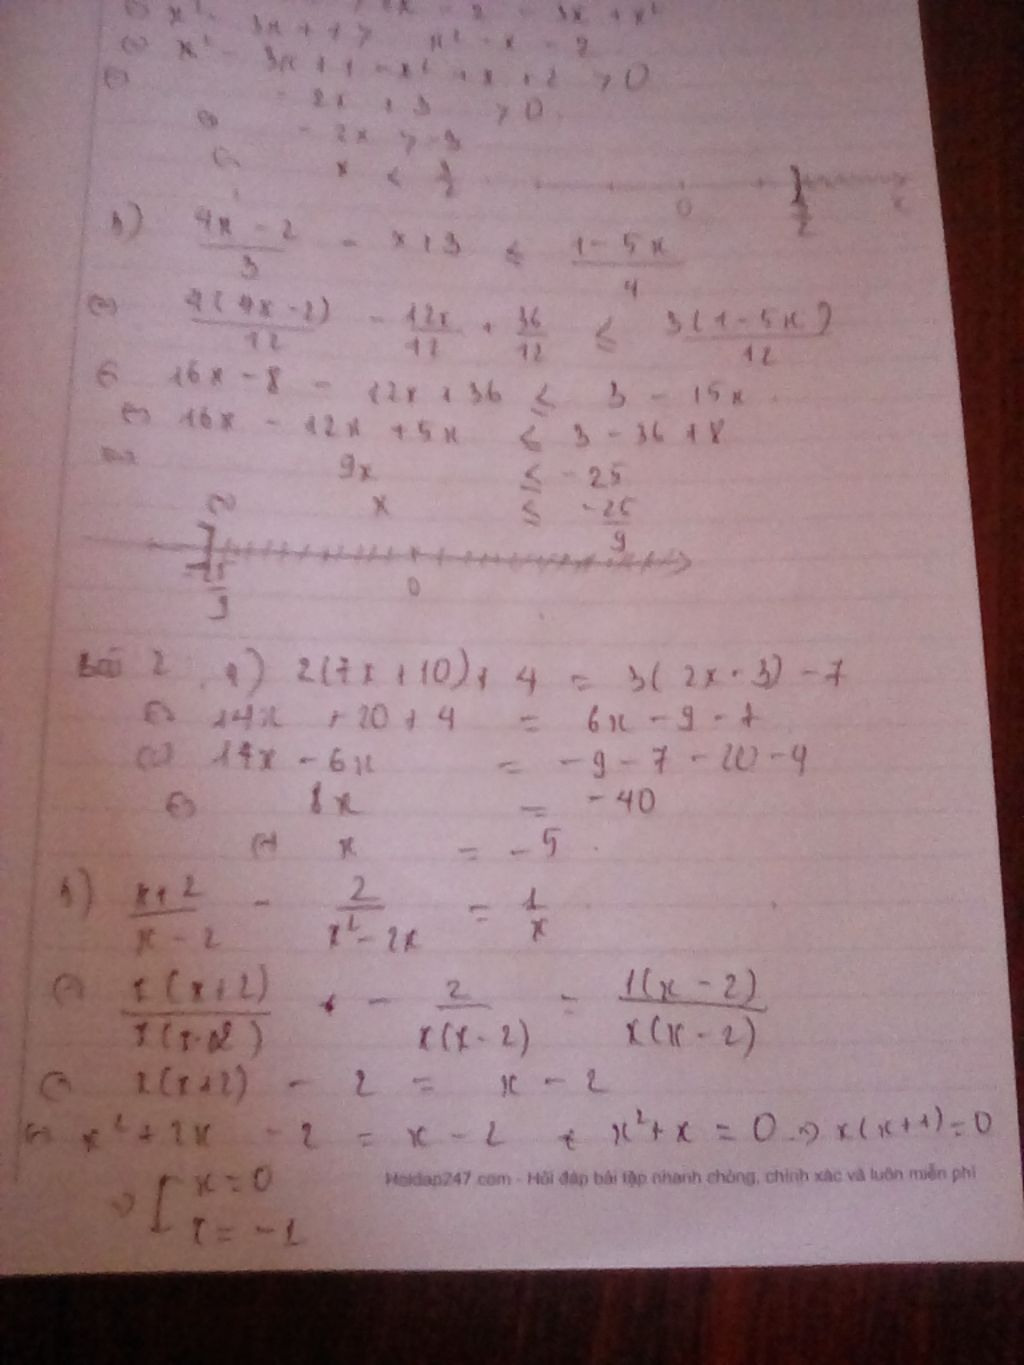 x² - 3x + 1 > x² - x - 2
⇔ x² - 3x + 1 - x² + x + 2 > 0
⇔ - 2x + 3 > 0
⇔ - 2x > -3
⇔ x < 3/2
0 3/2
b) (4x - 2)/3 - x + 3 ≤ (1 - 5x)/4
⇔ 4(4x - 2)/12 - 12x/12 + 36/12 ≤ 3(1 - 5x)/12
⇔ 16x - 8 - 12x + 36 ≤ 3 - 15x
⇔ 16x - 12x + 5x ≤ 3 - 36 + 8
⇔ 9x ≤ -25
⇔ x ≤ -25/9
0
Bài 2 a) 2(7x + 10) + 4 = 3(2x - 3) - 7
⇔ 14x + 20 + 4 = 6x - 9 - 7
⇔ 14x - 6x = -9 - 7 - 20 - 4
⇔ 8x = -40
⇔ x = -5
b) (x+2)/(x-2) - 2/(x²-2x) = 1/x
⇔ x(x+2)/x(x-2) - 2/x(x-2) = 1(x-2)/x(x-2)
⇔ x(x+2) - 2 = x - 2
⇔ x² + 2x - 2 = x - 2 ⇔ x² + x = 0 ⇒ x(x+1) = 0
⇒ [ x = 0
x = -1
Hoidap247.com - Hỏi đáp bài tập nhanh chóng, chính xác và luôn miễn phí